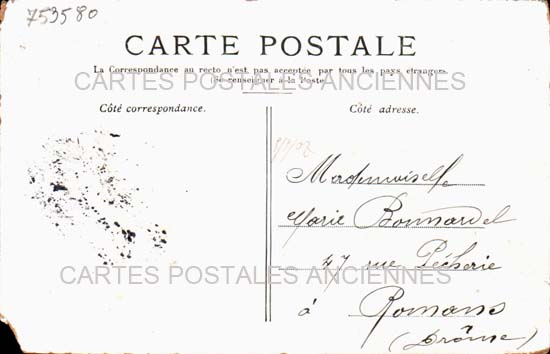 753580
CARTE POSTALE
La Correspondance au recto n'est pas acceptée par tous les pays étrangers.
(Se renseigner à la Poste)
CARTES POSTALES ANCIENNES
Côté correspondance.
Côté adresse.
Mademoiselle
Marie Bonnardel
47 rue Pêcherie
à Romans
(Drôme)
CARTES POSTALES ANCIENNES